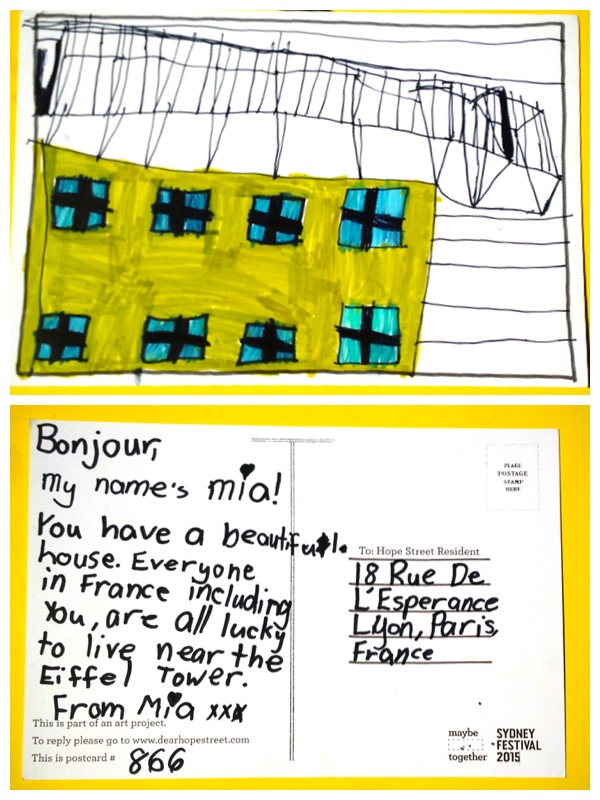 Bonjour,
my name's mia!
You have a beautiful.
house. Everyone
in France including
You, are all lucky
to live near the
Eiffel Tower.
From Mia xxx
This is part of an art project.
To reply please go to www.dearhopestreet.com
This is postcard # 866
PLACE
POSTAGE
STAMP
HERE
To: Hope Street Resident
18 Rue De
L'Esperance
Lyon, Paris,
France
maybe
together
SYDNEY
FESTIVAL
2015